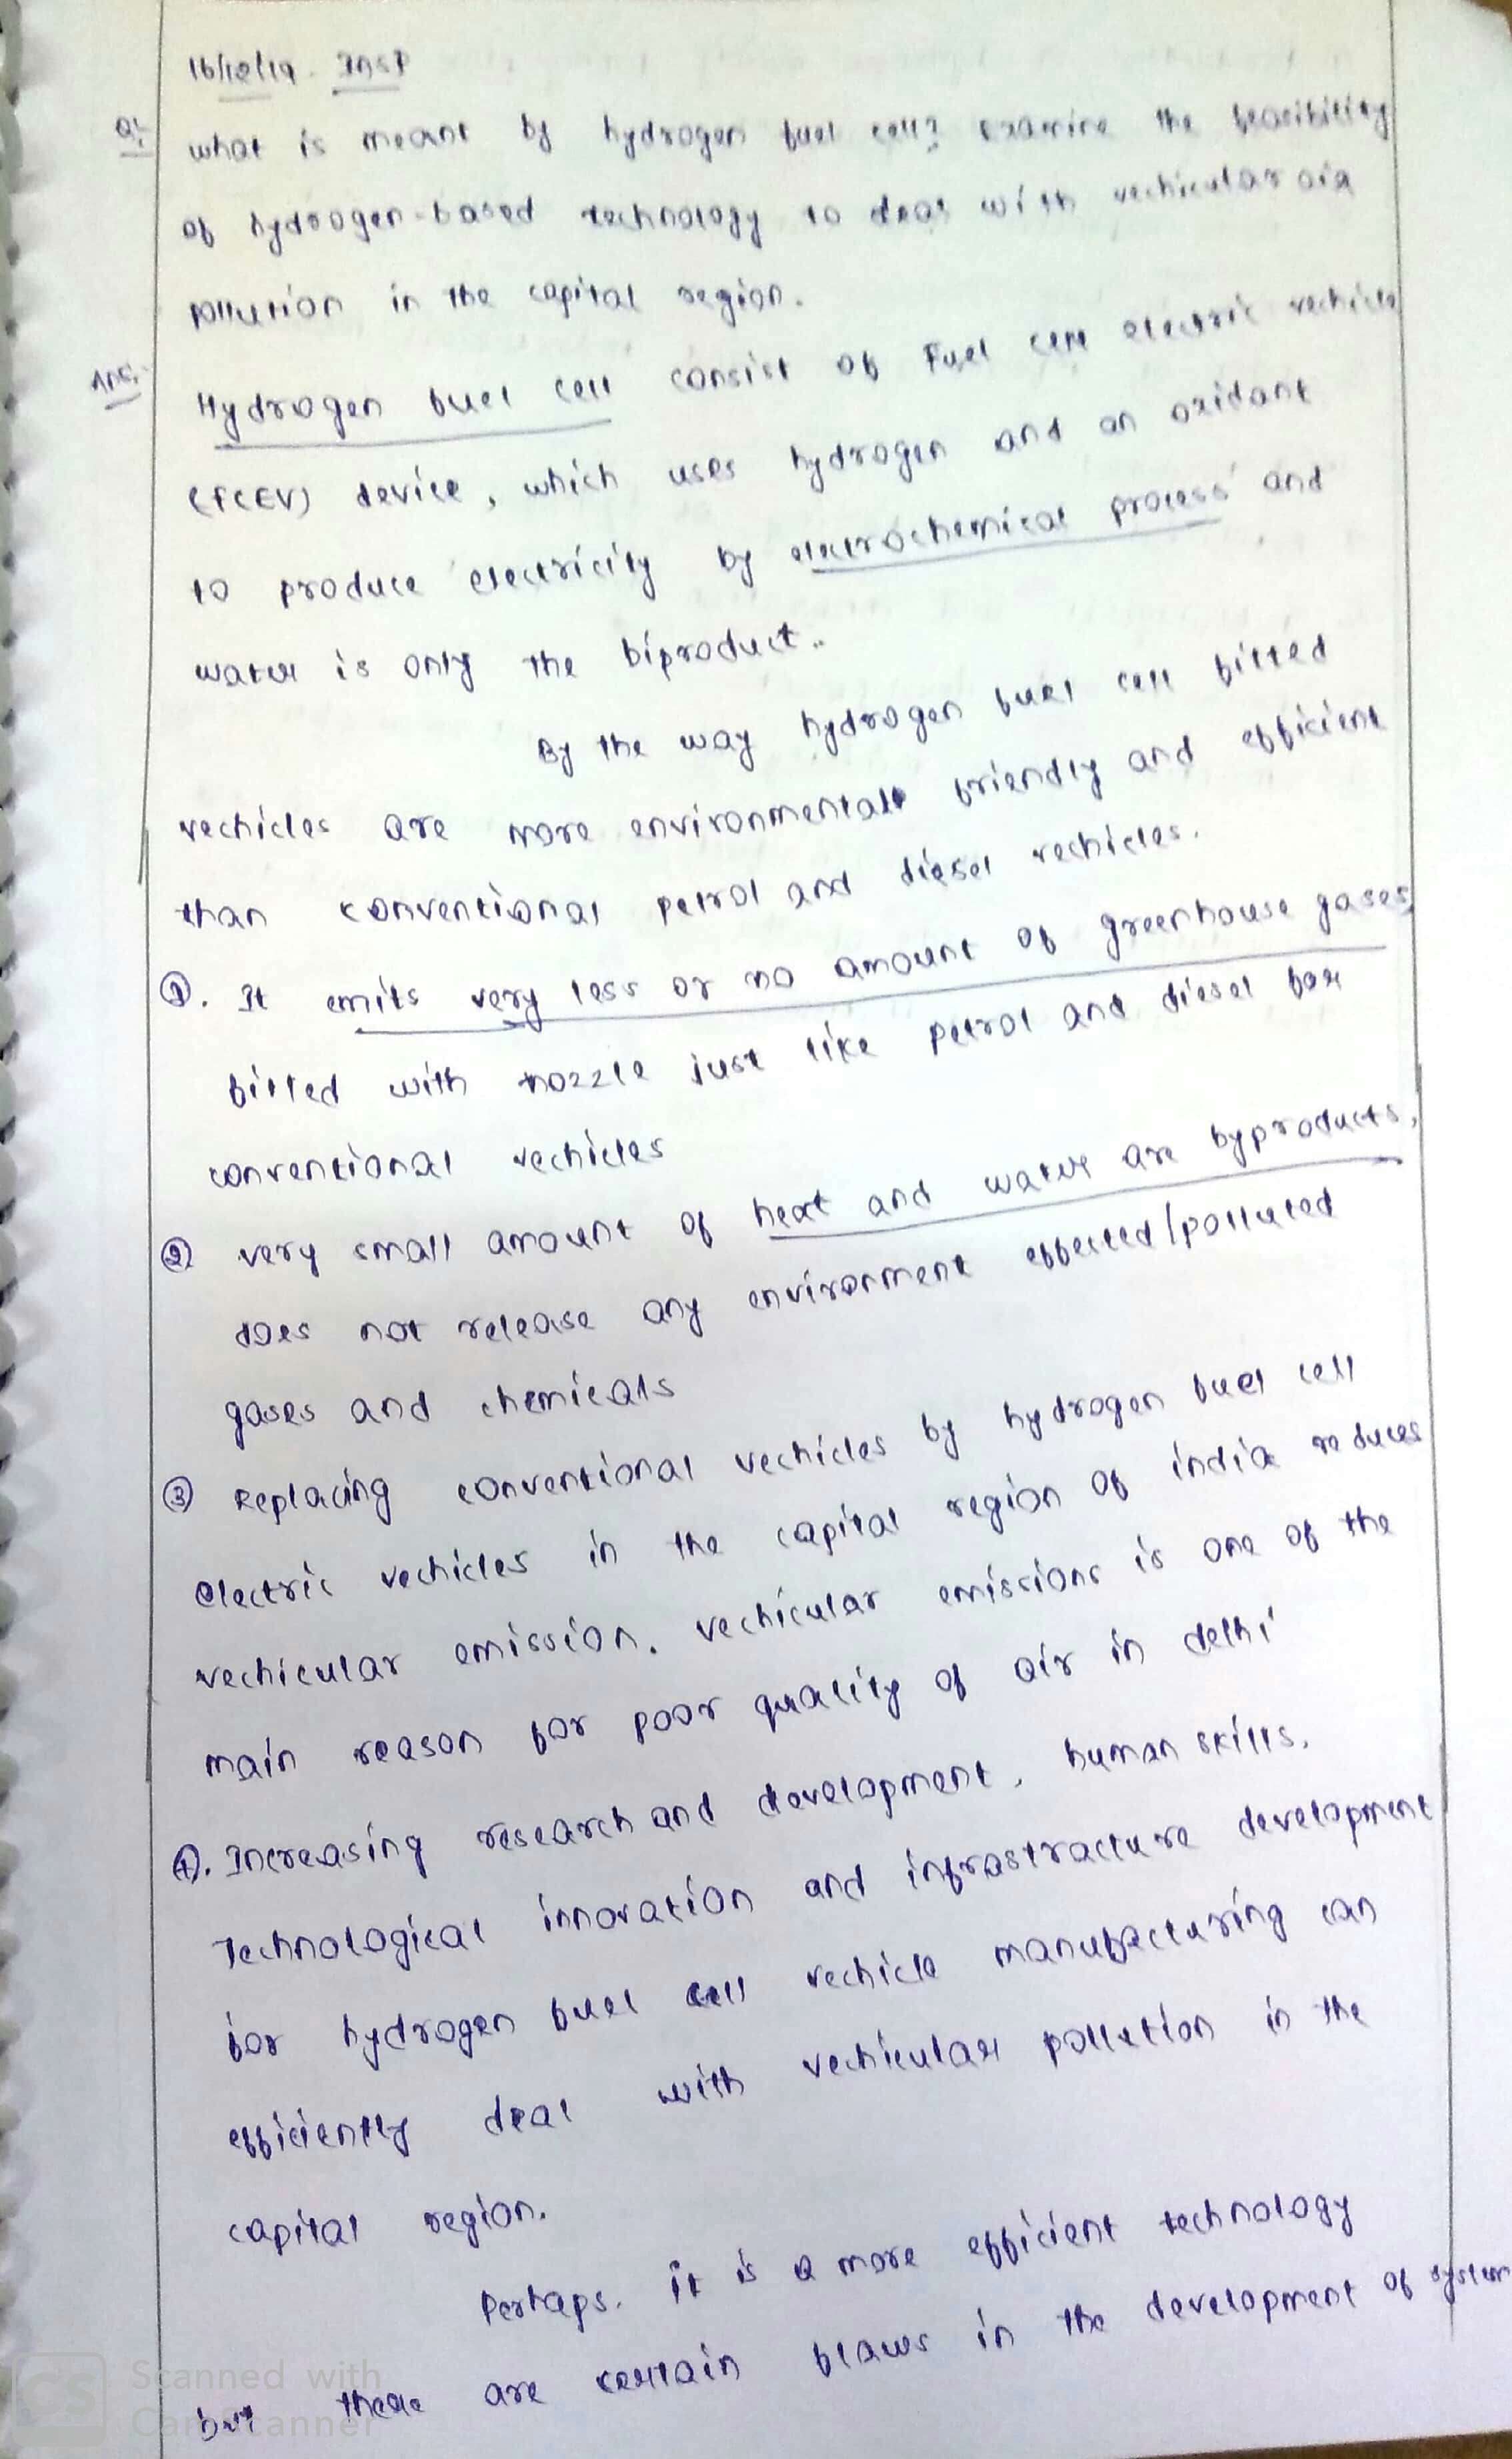 16/12/19. INSP
Q:- what is meant by hydrogen fuel cell? Examine the feasibility
of hydrogen-based technology to deal with vechicular air
pollution in the capital region.
Ans:- Hydrogen fuel cell consist of Fuel cell electric vechicle
(FCEV) device, which uses hydrogen and an oxidant
to produce electricity by electrochemical process and
water is only the biproduct.
By the way hydrogen fuel cell fitted
vechicles are more environmental friendly and efficient
than conventional petrol and diesel vechicles.
①. It emits very less or no amount of greenhouse gases,
fitted with nozzle just like petrol and diesel for
conventional vechicles
② very small amount of heat and water are byproducts,
does not release any environment effected/polluted
gases and chemicals
③ Replacing conventional vechicles by hydrogen fuel cell
electric vechicles in the capital region of india reduces
vechicular emission. vechicular emissions is one of the
main reason for poor quality of air in delhi
④. Increasing research and development, human skills,
Technological innovation and infrastructure development
for hydrogen fuel cell vechicle manufacturing can
efficiently deal with vechicular pollution in the
capital region.
Perhaps, it is a more efficient technology
but there are certain flaws in the development of system
CS Scanned with
CamScanner